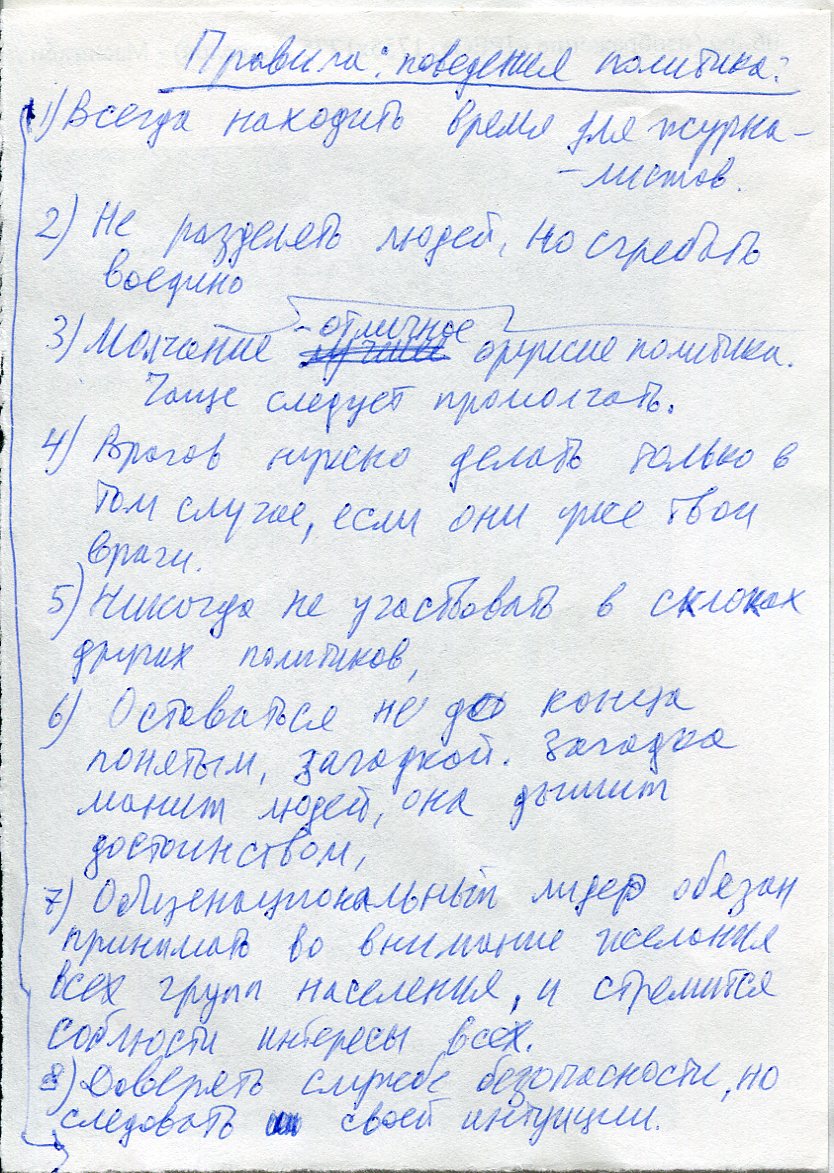 Правила: поведения политика:
1) Всегда находить время для журна-
-листов.
2) Не разделять людей, но сгребать
воедино
3) Молчание - отличное оружие политика.
Чаще следует промолчать.
4) Врагов нужно делать только в
том случае, если они уже твои
враги.
5) Никогда не участвовать в склоках
других политиков,
6) Оставаться не до конца
понятым, загадкой. Загадка
манит людей, она дышит
достоинством,
7) Общенациональный лидер обязан
принимать во внимание желания
всех групп населения, и стремится
соблюсти интересы всех.
8) Доверять службе безопасности, но
следовать своей интуиции.